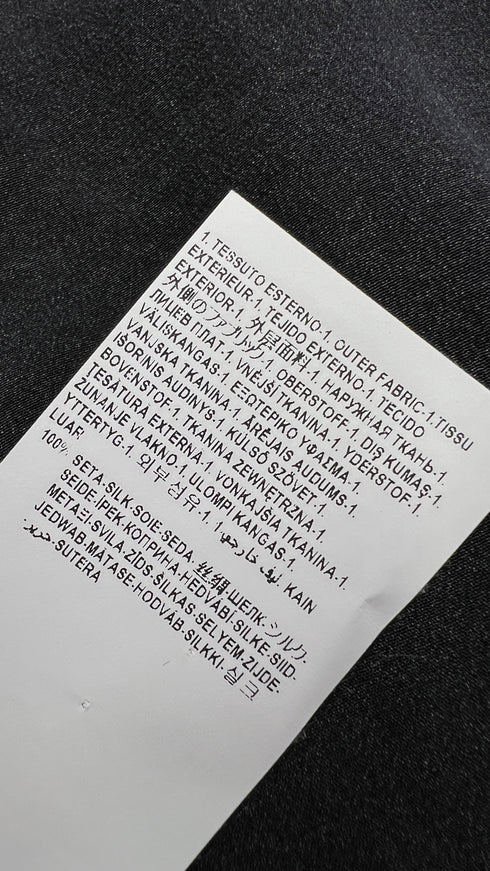 1. TESSUTO ESTERNO-1. OUTER FABRIC-1.TISSU
EXTERIEUR-1. TEJIDO EXTERNO-1. TECIDO
EXTERIOR-1. 外层面料-1. НАРУЖНАЯ ТКАНЬ-1.
外側のファブリック-1. OBERSTOFF-1. DIŞ KUMAŞ-1.
ЛИЦЕВ ПЛАТ-1. VNĚJŠÍ TKANINA-1. YDERSTOF-1.
VÄLISKANGAS-1. ΕΞΩΤΕΡΙΚΟ ΥΦΑΣΜΑ-1.
VANJSKA TKANINA-1. ĀRĒJAIS AUDUMS-1.
IŠORINIS AUDINYS-1. KÜLSŐ SZÖVET-1.
BOVENSTOF-1. TKANINA ZEWNĘTRZNA-1.
TESATURA EXTERNA-1. VONKAJŠIA TKANINA-1.
ZUNANJE VLAKNO-1. ULOMPI KANGAS-1.
YTTERTYG-1. 외부섬유-1. ليف خارجي-1. KAIN
LUAR
100% SETA-SILK-SOIE-SEDA-丝绸-ШЕЛК-シルク-
SEIDE-İPEK-КОПРИНА-HEDVÁBÍ-SILKE-SIID-
ΜΕΤΑΞΙ-SVILA-ZĪDS-ŠILKAS-SELYEM-ZIJDE-
JEDWAB-MATASE-HODVÁB-SILKKI-실크
حرير-SUTERA